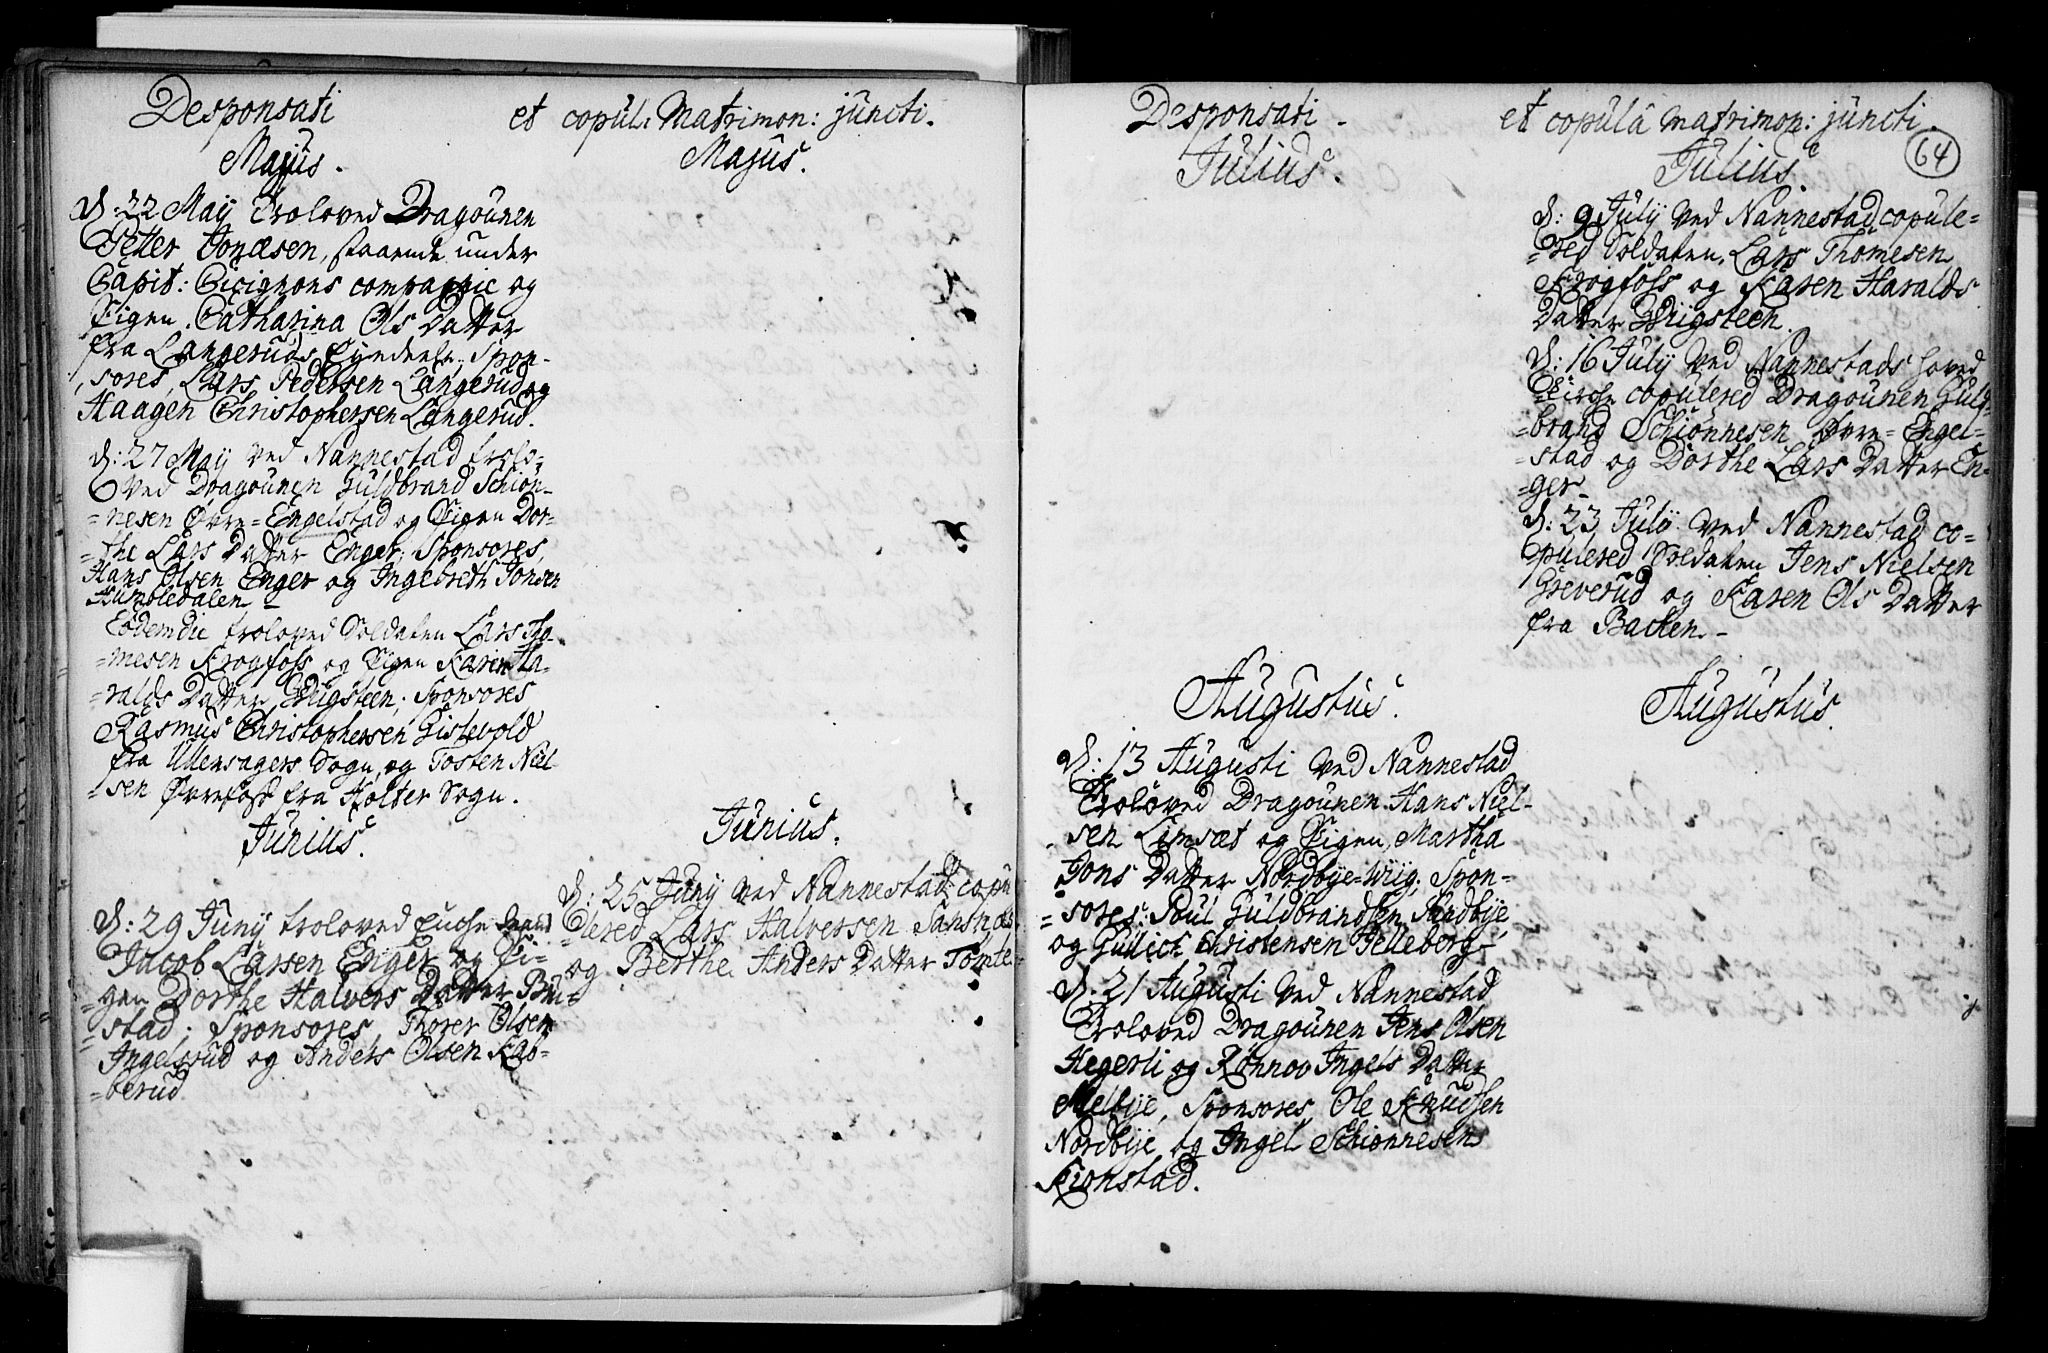 Desponsati
Majus.
D: 22 Maij Troloved Dragounen
Petter Jonæsen, staaende under
Capit: Cicignons compagnie og
Pigen Catharina Ols Datter
fra Langeruds Eÿendeele, Spon-
sores, Lars Pedersen Langerud og
Haagen Christophersen Langerud.
D: 27 Maij ved Nannestad trolo-
ved Dragounen Guldbrand Schion-
=nesen Øvre=Engelstad og Pigen Dor-
=the Lars Datter Enger, Sponsores,
Hans Olsen Enger og Ingebreth Jonsen
Humbledalen -
Eodem die troloved Soldaten Lars Tho-
=mesen Krogfoss og Pigen Karen Ha-
=ralds Datter Wrigsteen; Sponsores
Rasmus Christophersen Gistevold
fra Ullensagers Sogn, og Tosten Niel-
=sen Øvrefoss fra Holter Sogn.
Junius.
D: 29 Junÿ troloved
Jacob Larsen Enger og Pi-
=gen Dorthe Halvers Datter Bu-
=stad; Sponsores, Thorer Olsen
Ingelsrud og Anders Olsen Kab-
=berud.
et copul: Matrimon: juncti.
Majus.
Junius.
D: 25 Junÿ ved Nannestad copu-
=lered Lars Halversen
og Berthe Anders Datter Tomte
Desponsati -
Julius.
Augustus.
D: 13 Augusti ved Nannestad
Troloved Dragounen Hans Niel-
sen Limsæt og Pigen, Martha
Jons Datter Nordbye=Wiig; Spon-
=sores: Poul Guldbrandsen Nordbÿe
og Gullich Christensen Pelleberg -
D: 21 Augusti ved Nannestad
Troloved Dragounen Jens Olsen
Hegerli og Rønnov Ingels Datter
Melbÿe, Sponsores, Ole Knudsen
Nordbÿe, og Ingel Schionnesen
Kionstad.
et copulâ matrimon: juncti.
64
Julius.
D: 9 Julÿ ved Nannestad copule-
=red Soldaten, Lars Thomesen
Krogfoss og Karen Haralds
Datter Wrigsteen.
D: 16 Julÿ ved Nannestads hoved
Kirche copulered Dragounen Guld-
=brand Schionnesen Øvre=Engel-
=stad og Dorthe Lars Datter En-
=ger -
D: 23 Julÿ ved Nannestad co-
pulered Soldaten Jens Nielsen
Greverud og Karen Ols Datter
fra Bachen -
Augustus.